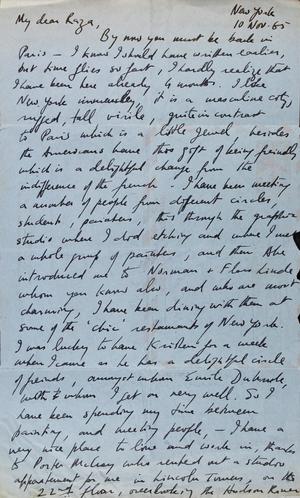 New York
10 Nov. 65
My dear Raza,
By now you must be back in
Paris – I know I should have written earlier,
but time flies so fast, I hardly realize that
I have been here already 4 months. I like
New York immensely, it is a masculine city,
rugged, tall virile, quite in contrast
to Paris which is a little jewel besides
the Americans have this gift of being friendly
which is a delightful change from the
indifference of the french. I have been meeting
a number of people from different circles,
students, painters, this through the graphic
studio where I did etching and where I met
a whole group of painters, and then Abe
introduced me to Norman & Flora
whom you know also, and who are most
charming, I have been dining with them at
some of the 'chic' restaurants of New York.
I was lucky to have Krishen for a week
when I came as he has a delightful circle
of friends, amongst whom Emile
with whom I get on very well. So I
have been spending my time between
painting, and meeting people, – I have a
very nice place to live and work in, thanks
to Porter McCray who rented out a studio
appartement for me in Lincoln Towers, on the
22nd floor, overlooking the Hudson River